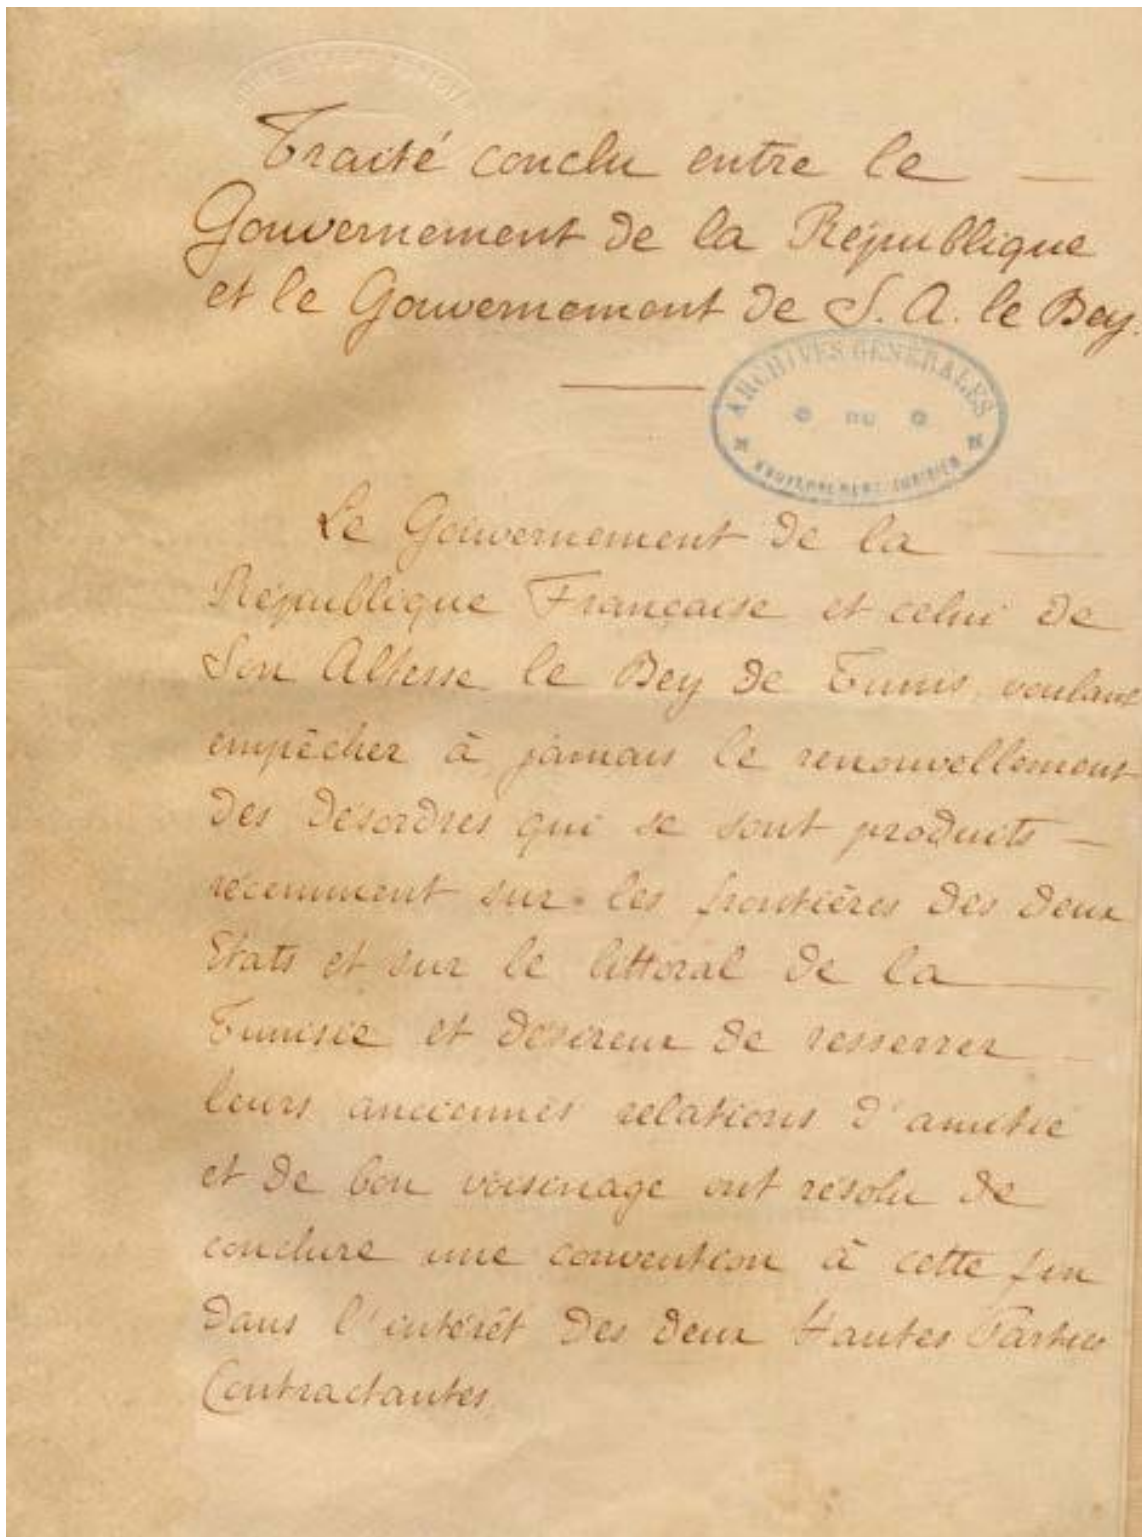 Traité conclu entre le —
Gouvernement de la République
et le Gouvernement de S. A. le Bey.
ARCHIVES GÉNÉRALES
DU
GOUVERNEMENT TUNISIEN
Le Gouvernement de la —
République Française et celui de
Son Altesse le Bey de Tunis, voulant
empêcher à jamais le renouvellement
des désordres qui se sont produits —
récemment sur les frontières des deux
Etats et sur le littoral de la —
Tunisie et désireux de resserrer —
leurs anciennes relations d'amitié
et de bon voisinage ont résolu de
conclure une convention à cette fin
dans l'intérêt des deux Hautes Parties
Contractantes.